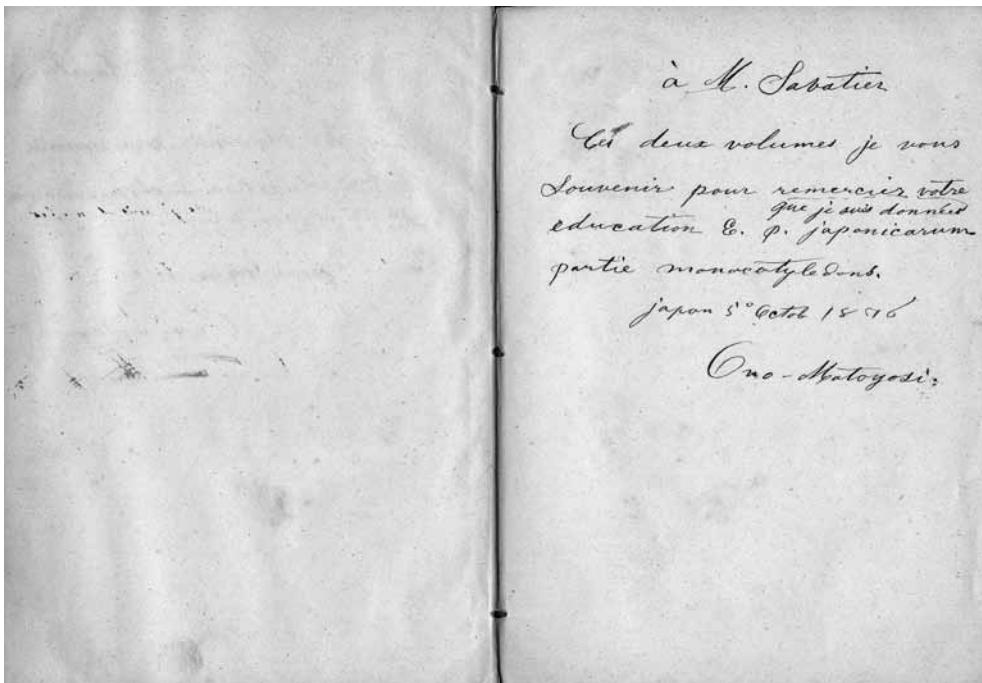 à M. Sabatier
Ces deux volumes je vous
Souvenir pour remercier votre
que je suis données
education E. p. japonicarum
partie monocotyledons.
japon 5° Octob 1876
Ono-Motoyosi.